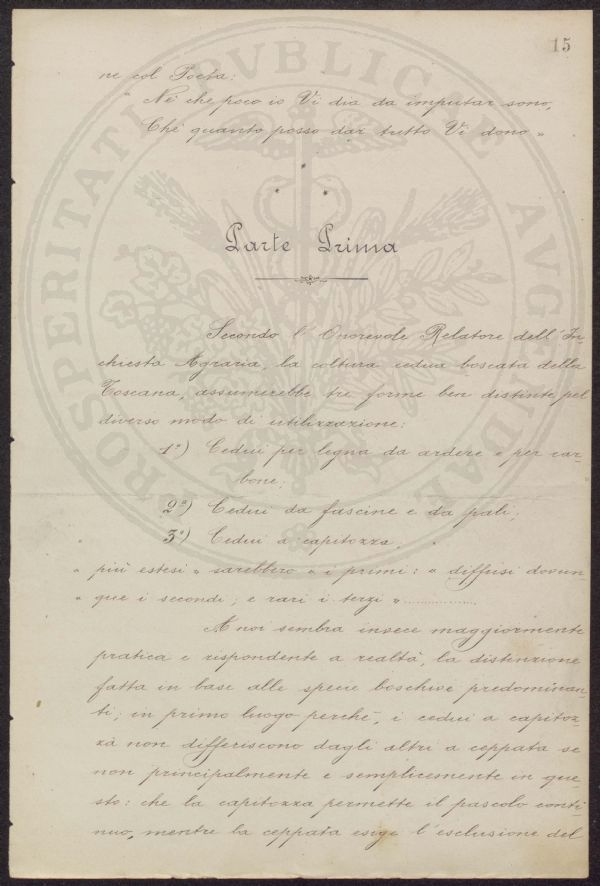 15
ne col Poeta:
" Nè che poco io Vi dia da imputar sono,
Chè quanto posso dar tutto Vi dono "
Parte Prima
Secondo l' Onorevole Relatore dell' In-
chiesta Agraria, la coltura cedua boscata della
Toscana, assumerebbe tre forme ben distinte pel
diverso modo di utilizzazione:
1°) Cedui per legna da ardere e per car-
bone;
2°) Cedui da fascine e da pali;
3°) Cedui a capitozza.
" più estesi " sarebbero " i primi: " diffusi dovun-
" que i secondi; e rari i terzi "................
A noi sembra invece maggiormente
pratica e rispondente a realtà, la distinzione
fatta in base alle specie boschive predominan-
ti; in primo luogo perchè, i cedui a capitoz-
za non differiscono dagli altri a ceppata se
non principalmente e semplicemente in que-
sto: che la capitozza permette il pascolo conti-
nuo, mentre la ceppata esige l'esclusione del
PROSPERITATI PVBLICAE AVGENDAE